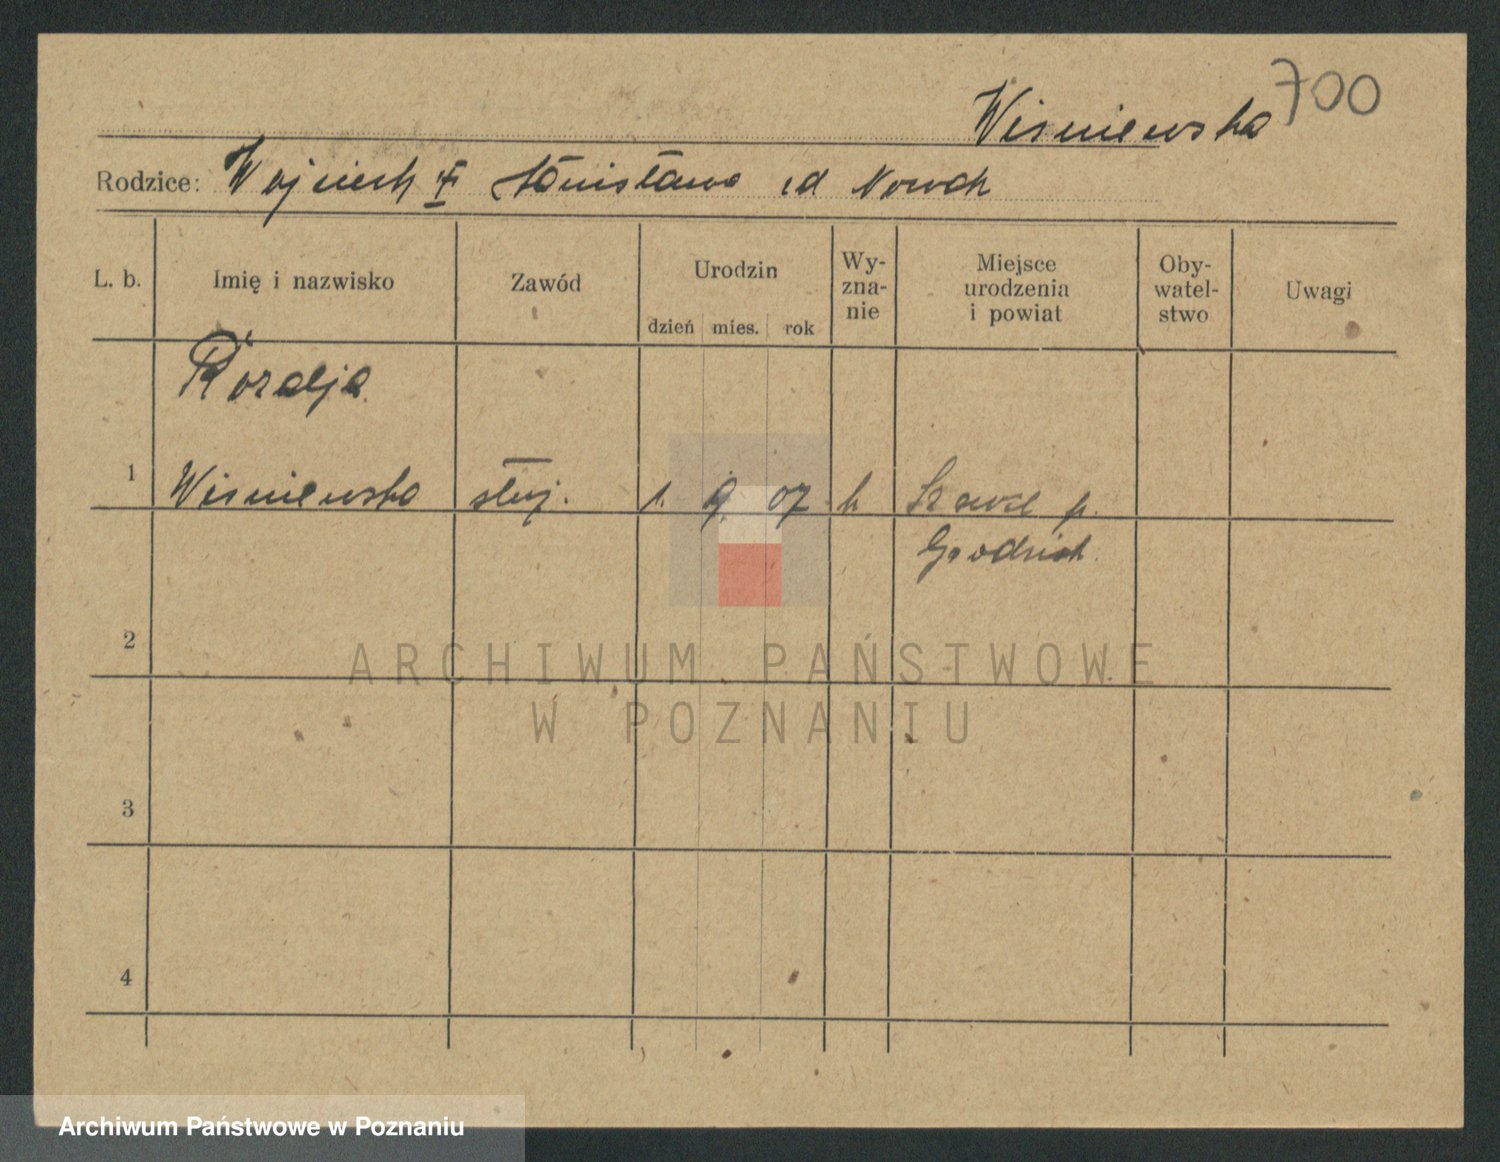 700
Wiśniewska
Rodzice: Wojciech i Stanisława
L. b. Imię i nazwisko Zawód Urodzin Wy-zna-nie Miejsce urodzenia i powiat Oby-watel-stwo Uwagi
dzień mies. rok
Rozalja
1 Wiśniewska służ. 1. 9. 07
2
3
4
ARCHIWUM PAŃSTWOWE
W POZNANIU
Archiwum Państwowe w Poznaniu